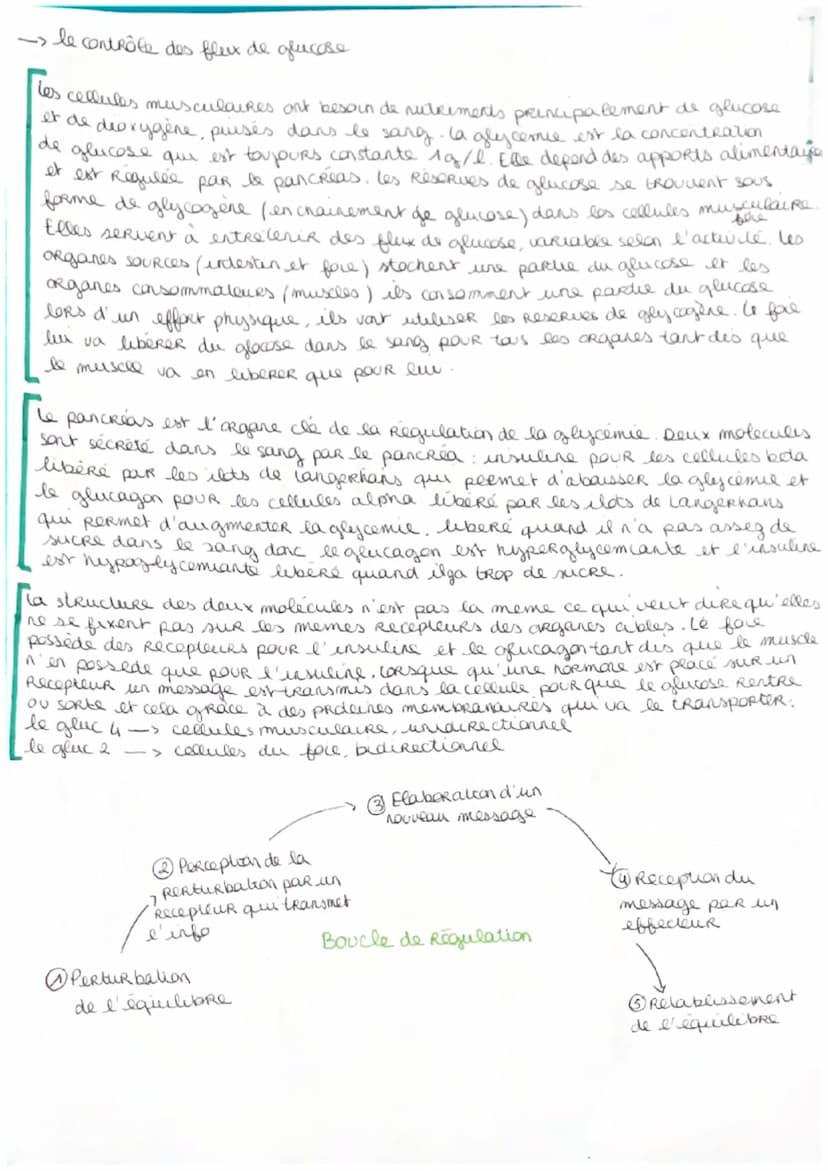 → le contrôle des flux de glucose
Les cellules musculaires ont besoin de nutriments principalement de glucose
et de dioxygène, puisés dans le sang. La glycemie est la concentration
de glucose qui est toujours constante 1g/l. Elle depend des apports alimentaire
et est régulée par le pancréas. Les réserves de glucose se trouvent sous
forme de glycogène (enchainement de glucose) dans les cellules musculaire
foie
Elles servent à entretenir des flux de glucose, variable selon l'activité. Les
organes sources (intestin et foie) stockent une partie du glucose et les
organes consommateurs (muscles) ils consomment une partie du glucose
lors d'un effort physique, ils vont utiliser les réserves de glycogène. Le foie
lui va libérer du glocose dans le sang pour tous les organes tant dis que
le muscle va en liberer que pour lui.
Le pancréas est l'organe clé de la régulation de la glycémie. Deux molécules
sont sécrété dans le sang par le pancréa : insuline pour les cellules beta
libéré par les ilots de Langerhans qui permet d'abaisser la glycémie et
le glucagon pour les cellules alpha libéré par les ilots de Langerhans
qui permet d'augmenter la glycemie, liberé quand il n'a pas assez de
sucre dans le sang donc le glucagon est hyperglycemiante et l'insuline
est hypoglycemiante libéré quand ilya trop de sucre.
La structure des deux molécules n'est pas la meme ce qui veut dire qu'elles
ne se fixent pas sur les memes recepteurs des organes cibles. Le foie
possède des recepteurs pour l'insuline et le glucagon tant dis que le muscle
n'en possede que pour l'insuline. Lorsque qu'une hormone est placé sur un
recepteur un message est transmis dans la cellule pour que le glucose rentre
ou sorte et cela grâce à des proteines membranaires qui va le transporter:
le gluc 4 → cellules musculaire, unidirectionnel
le gluc 2 → cellules du foie, bidirectionnel
③ Elaboration d'un
nouveau message
② Perception de la
perturbation par un
recepteur qui transmet
l'info
④ Reception du
message par un
effecteur
Boucle de Régulation
① Perturbation
de l'équilibre
⑤ Retablissement
de l'équilibre